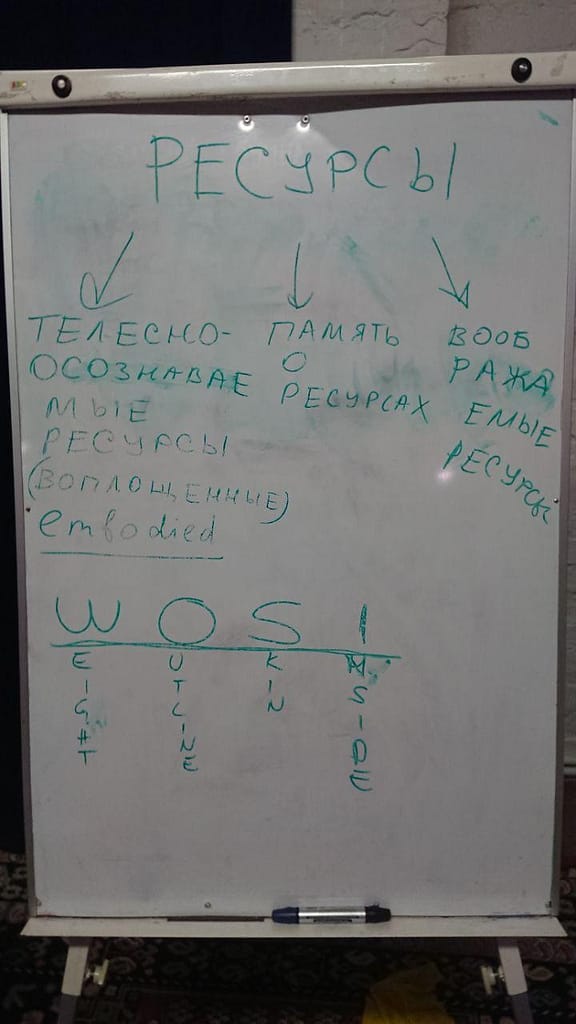 РЕСУРСЫ
ТЕЛЕСНО-
ОСОЗНАВАЕ
МЫЕ
РЕСУРСЫ
(ВОПЛОЩЕННЫЕ)
embodied
ПАМЯТЬ
О
РЕСУРСАХ
ВООБ
РАЖА
ЕМЫЕ
РЕСУРСЫ
W O S I
EIGHT
UTLINE
KIN
NSIDE